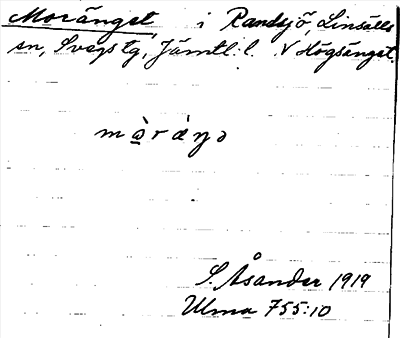 Moränget i Randsjö, Linsälls
sn, Svegs tg, Jämtl. l. N Högsänget.
màráŋə
S. Åsander 1919
Ulma 755:10